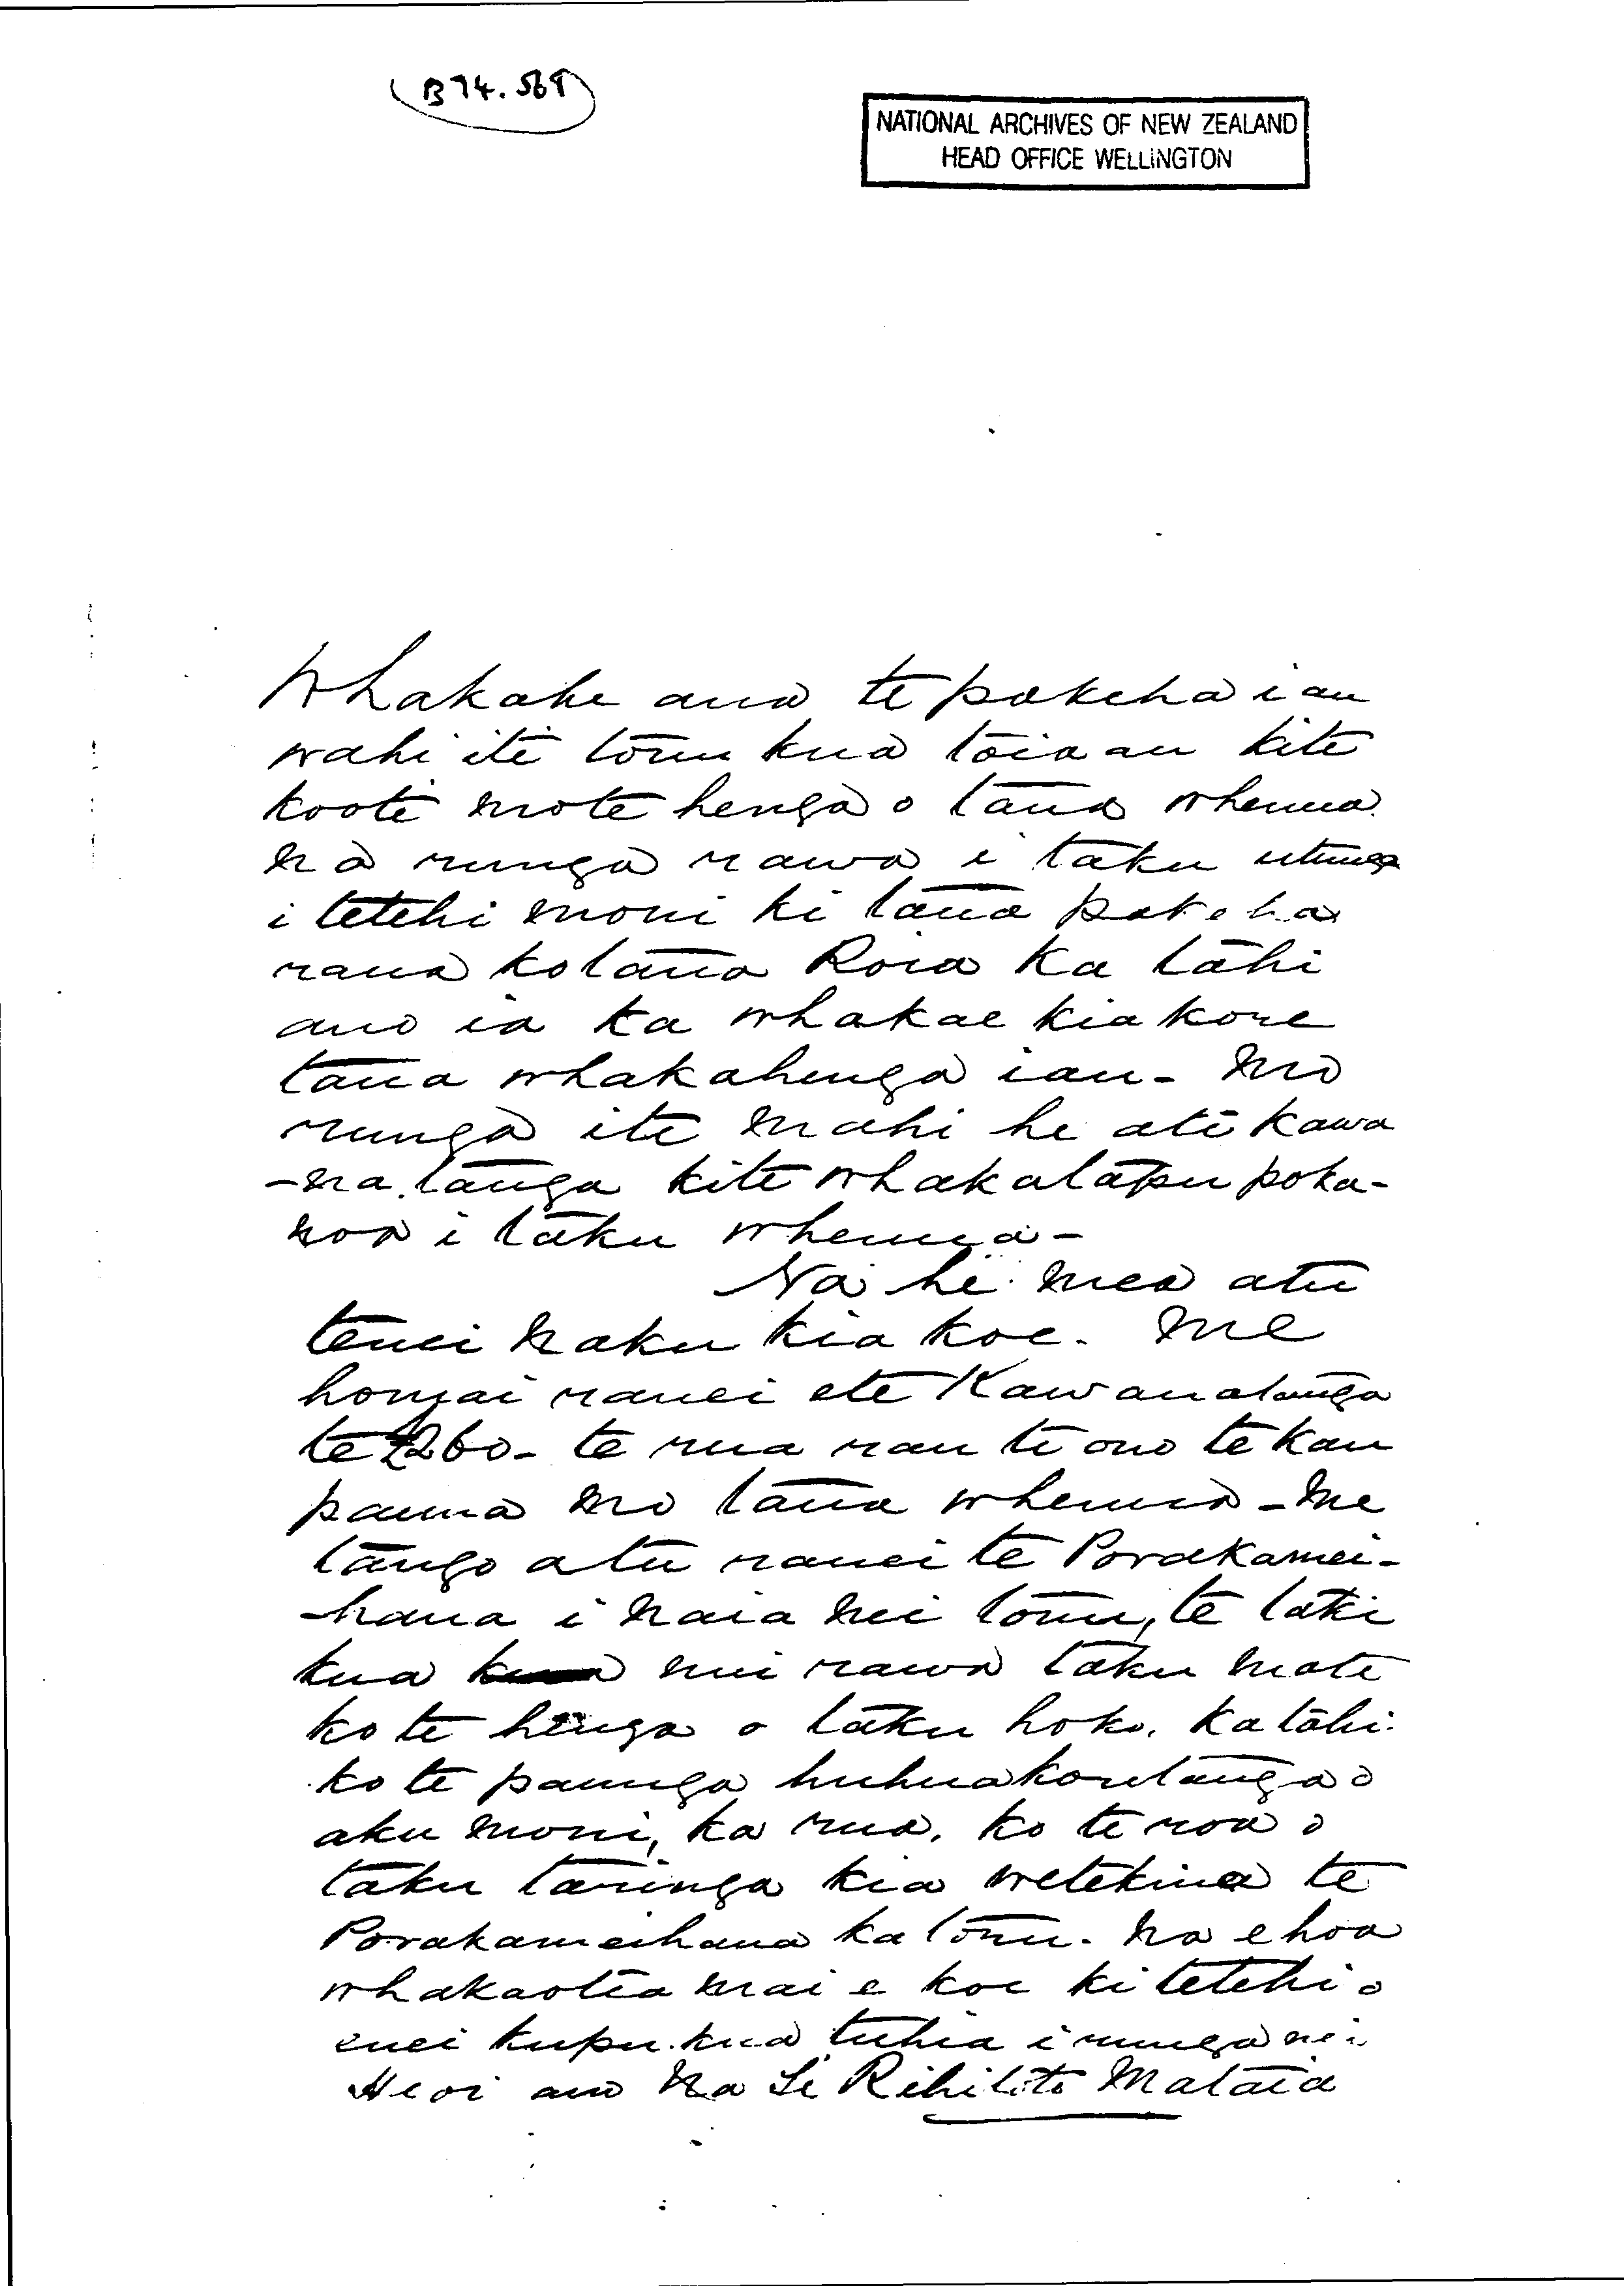 B 74.568
NATIONAL ARCHIVES OF NEW ZEALAND
HEAD OFFICE WELLINGTON
Whakahe ana te pakeha i au
wahi ite toru kua toia au kite
kooti mote henga o taua whenua.
na runga rawa i taku utunga
i tetehi moni ki taua pakeha
raua ko tana Roia ka tahi
ano ia ka whakae kia kore
tana whakahenga iau - mo
runga ite mahi he ate kawa
-na tanga kite whakatapu poka-
noa i taku whenua -
Na he mea atu
tenei naku kia koe. me
homai ranei ete Kawanatanga
te £260 - te rua rau te ono te kau
pauna mo taua whenua - me
tango atu ranei te Porakamei-
-hana i naia nei tonu, te take
kua nui rawa taku mate
ko te henga o taku hoko. ka tahi.
ko te paunga huhuakoretanga o
aku moni, ka rua. ko te roa o
taku taringa kia wetekina te
Porakameihana ka toru. na e hoa
whakaotia mai e koe ki tetehi o
enei kupu kua tuhia i runga nei
Heoi ano Na Te Rihitoto Mataia